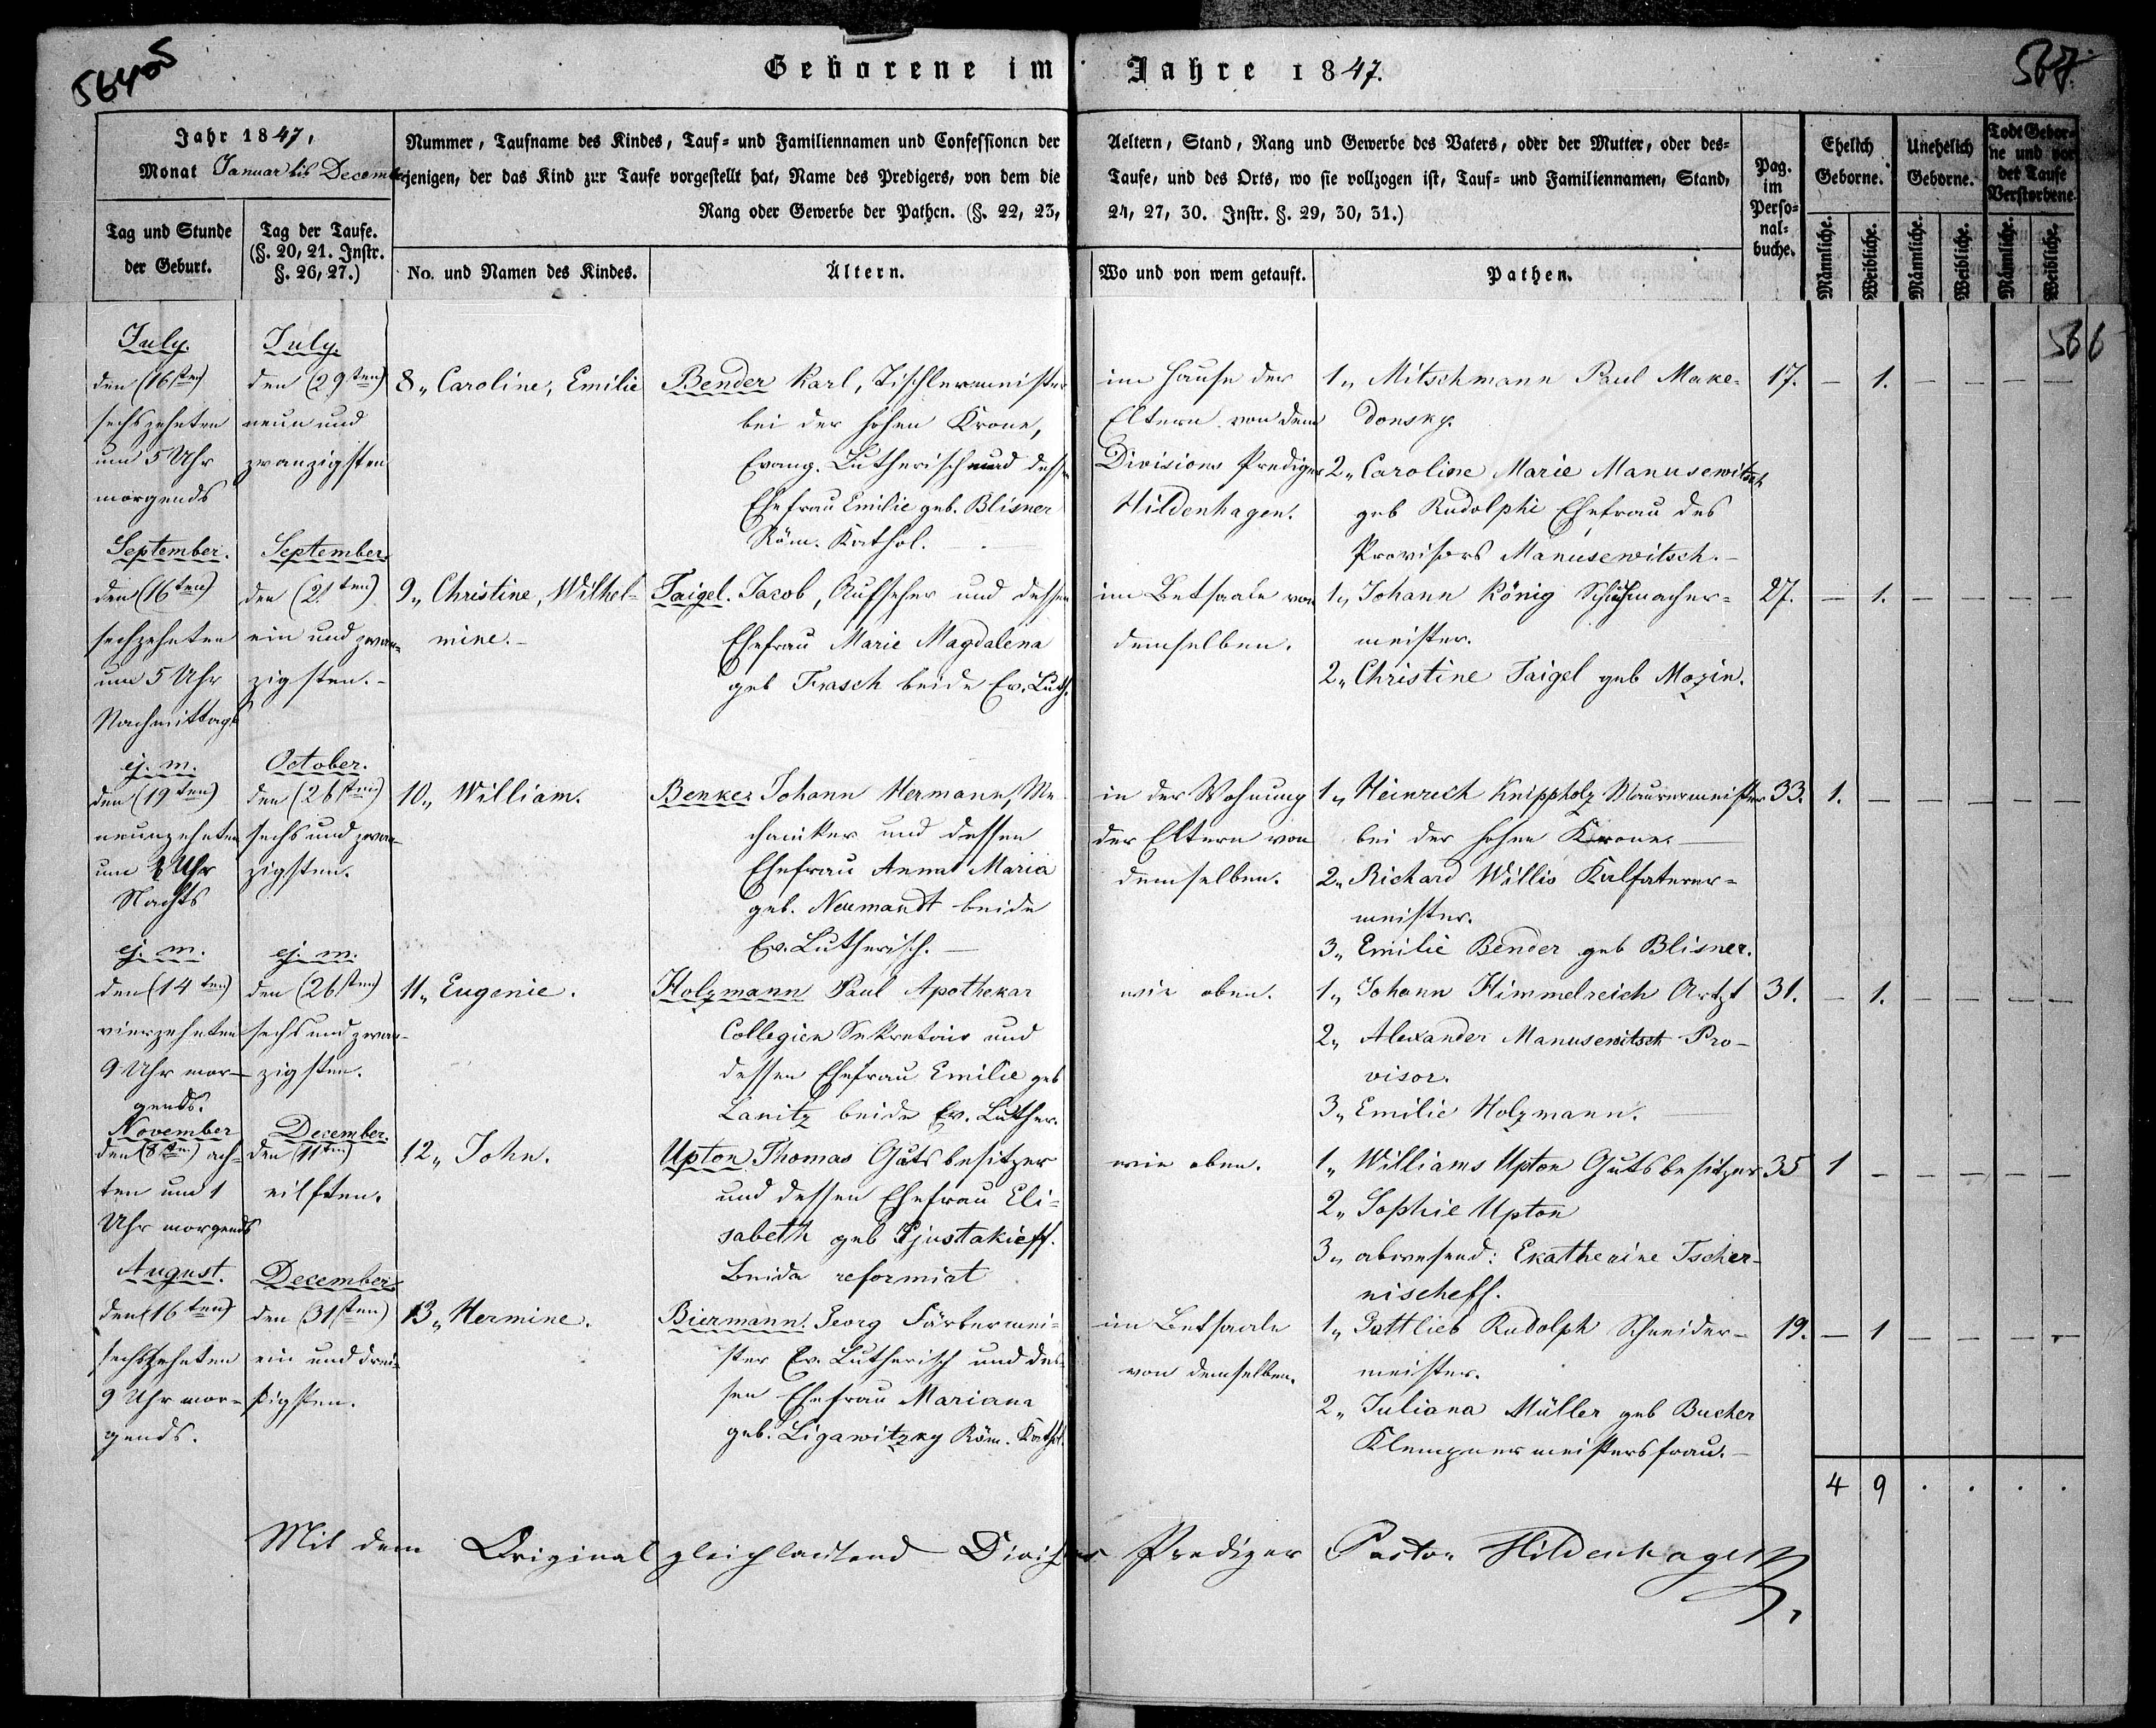 56405
Geborene im Jahre 1847.
567.
Jahr 1847,
Monat Januar bis December
Nummer, Taufname des Kindes, Tauf- und Familiennamen und Confessionen der
jenigen, der das Kind zur Taufe vorgestellt hat, Name des Predigers, von dem die
Rang oder Gewerbe der Pathen. (§. 22, 23,
Aeltern, Stand, Rang und Gewerbe des Vaters, oder der Mutter, oder des-
Taufe, und des Orts, wo sie vollzogen ist, Tauf- und Familiennamen, Stand,
24, 27, 30. Instr. §. 29, 30, 31.)
Tag und Stunde
der Geburt.
Tag der Taufe.
(§. 20, 21. Instr.
§. 26, 27.)
No. und Namen des Kindes.
Ältern.
Wo und von wem getauft.
Pathen.
Pag.
im
Perso-
nal-
buche.
Ehelich
Geborne.
Unehelich
Geborne.
Todt Gebor-
ne und vor
der Taufe
Verstorbene.
Männliche.
Weibliche.
Männliche.
Weibliche.
Männliche.
Weibliche.
566
July.
den (16ten)
sechszehnten
um 5 Uhr
morgends
July.
den (29ten)
neun und
zwanzigsten
8„ Caroline, Emilie
Bender Karl, Tischlermeister
bei der hohen Krone,
Evang. Lutherisch und dessen
Ehefrau Emilie geb. Blisner
Röm. Kathol.
im Hause der
Eltern von dem
Divisions Prediger
Hildenhagen.
1„ Mitschmann Paul Make-
donsky.
2„ Caroline Marie Manusewitsch
geb Rudolphi Ehefrau des
Provisors Manusewitsch. –
17. – 1. – – – –
September.
den (16ten)
sechzehnten
um 5 Uhr
Nachmittags
September.
den (21ten)
ein und zwan-
zigsten. –
9„ Christine, Wilhel-
mine. –
Taigel. Jacob, Aufseher und dessen
Ehefrau Marie Magdalena
geb Frasch beide Ev. Luth.
im Betsaale von
demselben.
1„ Johann König Schuhmacher-
meister.
2„ Christine Taigel geb Mozin.
27. – 1. – – – –
ej. m.
den (19ten)
neunzehnten
um Uhr
Nachts
October.
den (26sten)
sechs und zwan-
zigsten.
10„ William.
Benker Johann Hermann, Me-
chaniker und dessen
Ehefrau Anna Maria
geb. Neumandt beide
Ev. Lutherisch. –
in der Wohnung
der Eltern von
demselben.
1„ Heinrich Knippholz Maurermeister
bei der hohen Krone. –
2„ Richard Willis Kalfaterer-
meister.
3„ Emilie Bender geb Blisner.
33. 1. – – – – –
ej. m.
den (14ten)
vierzehnten
9 Uhr mor-
gends.
ej. m.
den (26sten)
sechs und zwan-
zigsten.
11„ Eugenie.
Holzmann Paul Apothekar
Collegien Sekretair und
dessen Ehefrau Emilie geb
Lanitz beide Ev. Luther.
wie oben.
1„ Johann Himmelreich Artzt
2„ Alexander Manusewitsch Pro-
visor.
3„ Emilie Holzmann.
31. – 1. – – – –
November
den (8ten) ach-
ten um 1
Uhr morgends
December.
den (11ten)
eilften.
12„ John.
Upton Thomas Gutsbesitzer
und dessen Ehefrau Eli-
sabeth geb Pjustakieff.
Beide reformirt
wie oben.
1„ Williams Upton Gutsbesitzer
2„ Sophie Upton
3„ abwesend: Ekatherine Tscher-
nischeff.
35 1 – – – – –
August.
den (16ten)
sechszehnten
9 Uhr mor-
gends.
December
den (31sten)
ein und drei-
ßigsten.
13„ Hermine.
Biermann. Georg Färbermei-
ster Ev. Lutherisch und des-
sen Ehefrau Mariana
geb. Ligawitzky Röm. Kathol.
im Betsaale
von demselben.
1„ Gottlieb Rudolph Schneider-
meister.
2„ Juliana Müller geb Bucher
Klempnermeistersfrau. –
19. – 1 – – – –
4 9 . . . .
Mit dem Original gleichlautend Divisions Prediger Pastor Hildenhagen